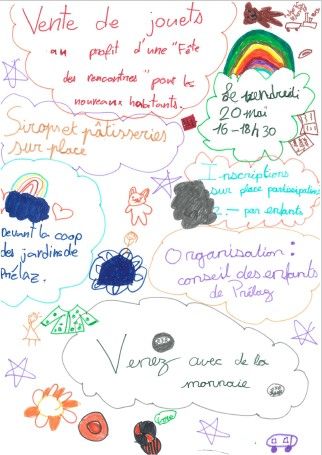 Vente de jouets
au profit d'une "Fête
des rencontres" pour les
nouveaux habitants.
Le vendredi
20 mai
16-18h30
Sirops et pâtisseries
sur place
Inscriptions
sur place participation
2.- par enfants
Devant la coop
des jardins de
Prélaz.
Organisation:
conseil des enfants
de Prélaz
Venez avec de la
monnaie